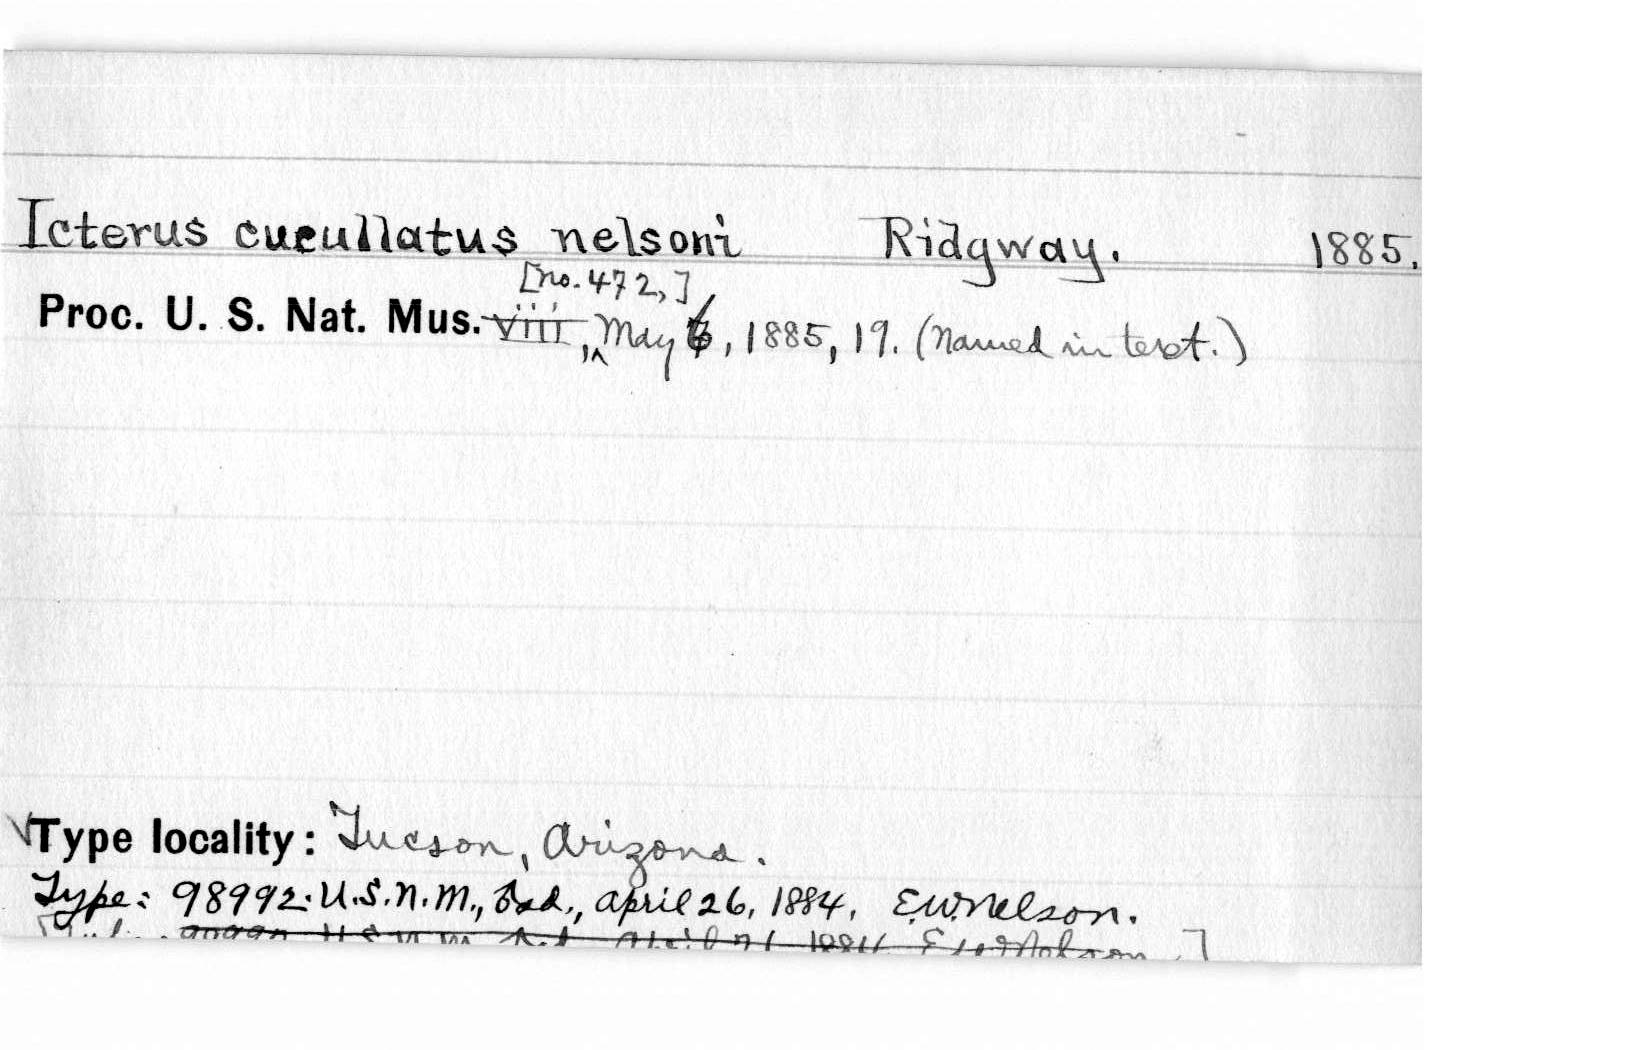 Icterus cucullatus nelsoni Ridgway. 1885.
[no. 472,]
Proc. U. S. Nat. Mus. viii, May 6, 1885, 19. (Named in text.)
Type locality: Tucson, Arizona.
Type: 98992. U.S.N.M., ad., April 26, 1884. E.W. Nelson.
U.S.N.M. April 1884 E W Nelson ]